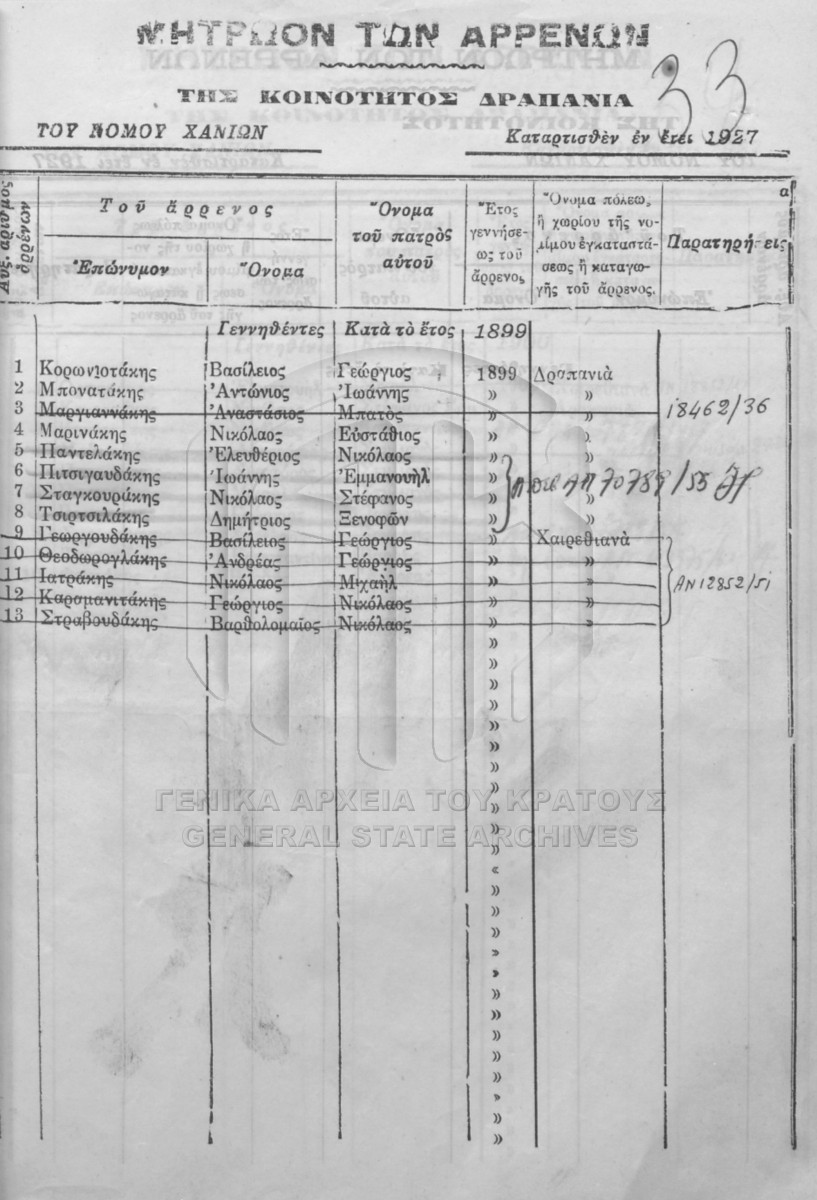 ΜΗΤΡΩΟΝ ΤΩΝ ΑΡΡΕΝΩΝ
33
ΤΗΣ ΚΟΙΝΟΤΗΤΟΣ ΔΡΑΠΑΝΙΑ
ΤΟΥ ΝΟΜΟΥ ΧΑΝΙΩΝ Καταρτισθὲν ἐν ἔτει 1927
Τοῦ ἄρρενος
Ἐπώνυμον Ὄνομα
Ὄνομα
τοῦ πατρὸς
αὐτοῦ
Ἔτος
γεννήσε-
ως τοῦ
ἄρρενο,
Ὄνομα πόλεω,
ἢ χωρίου τῆς νο-
μίμου ἐγκαταστά-
σεως ἢ καταγω-
γῆς τοῦ ἄρρενος.
Παρατηρή-εις
Γεννηθέντες Κατὰ τὸ ἔτος 1899
1 Κορωνιοτάκης Βασίλειος Γεώργιος 1899 Δραπανιὰ
2 Μπονατάκης Ἀντώνιος Ἰωάννης » »
3 Μαργιαννάκης Ἀναστάσιος Μπατὸς » » 18462/36
4 Μαρινάκης Νικόλαος Εὐστάθιος » »
5 Παντελάκης Ἐλευθέριος Νικόλαος » »
6 Πιτσιγαυδάκης Ἰωάννης Ἐμμανουὴλ » »
7 Σταγκουράκης Νικόλαος Στέφανος » »
8 Τσιρτσιλάκης Δημήτριος Ξενοφῶν » »
9 Γεωργουδάκης Βασίλειος Γεώργιος » Χαιρεθιανὰ
10 Θεοδωρογλάκης Ἀνδρέας Γεώργιος » »
11 Ιατράκης Νικόλαος Μιχαὴλ » » ΑΝ12852/51
12 Καραμανιτάκης Γεώργιος Νικόλαος » »
13 Στραβουδάκης Βαρθολομαῖος Νικόλαος » »
»
»
»
»
»
»
»
»
»
»
»
«
»
»
»
»
»
»
»
»
»
»
»
»
»
ΓΕΝΙΚΑ ΑΡΧΕΙΑ ΤΟΥ ΚΡΑΤΟΥΣ
GENERAL STATE ARCHIVES